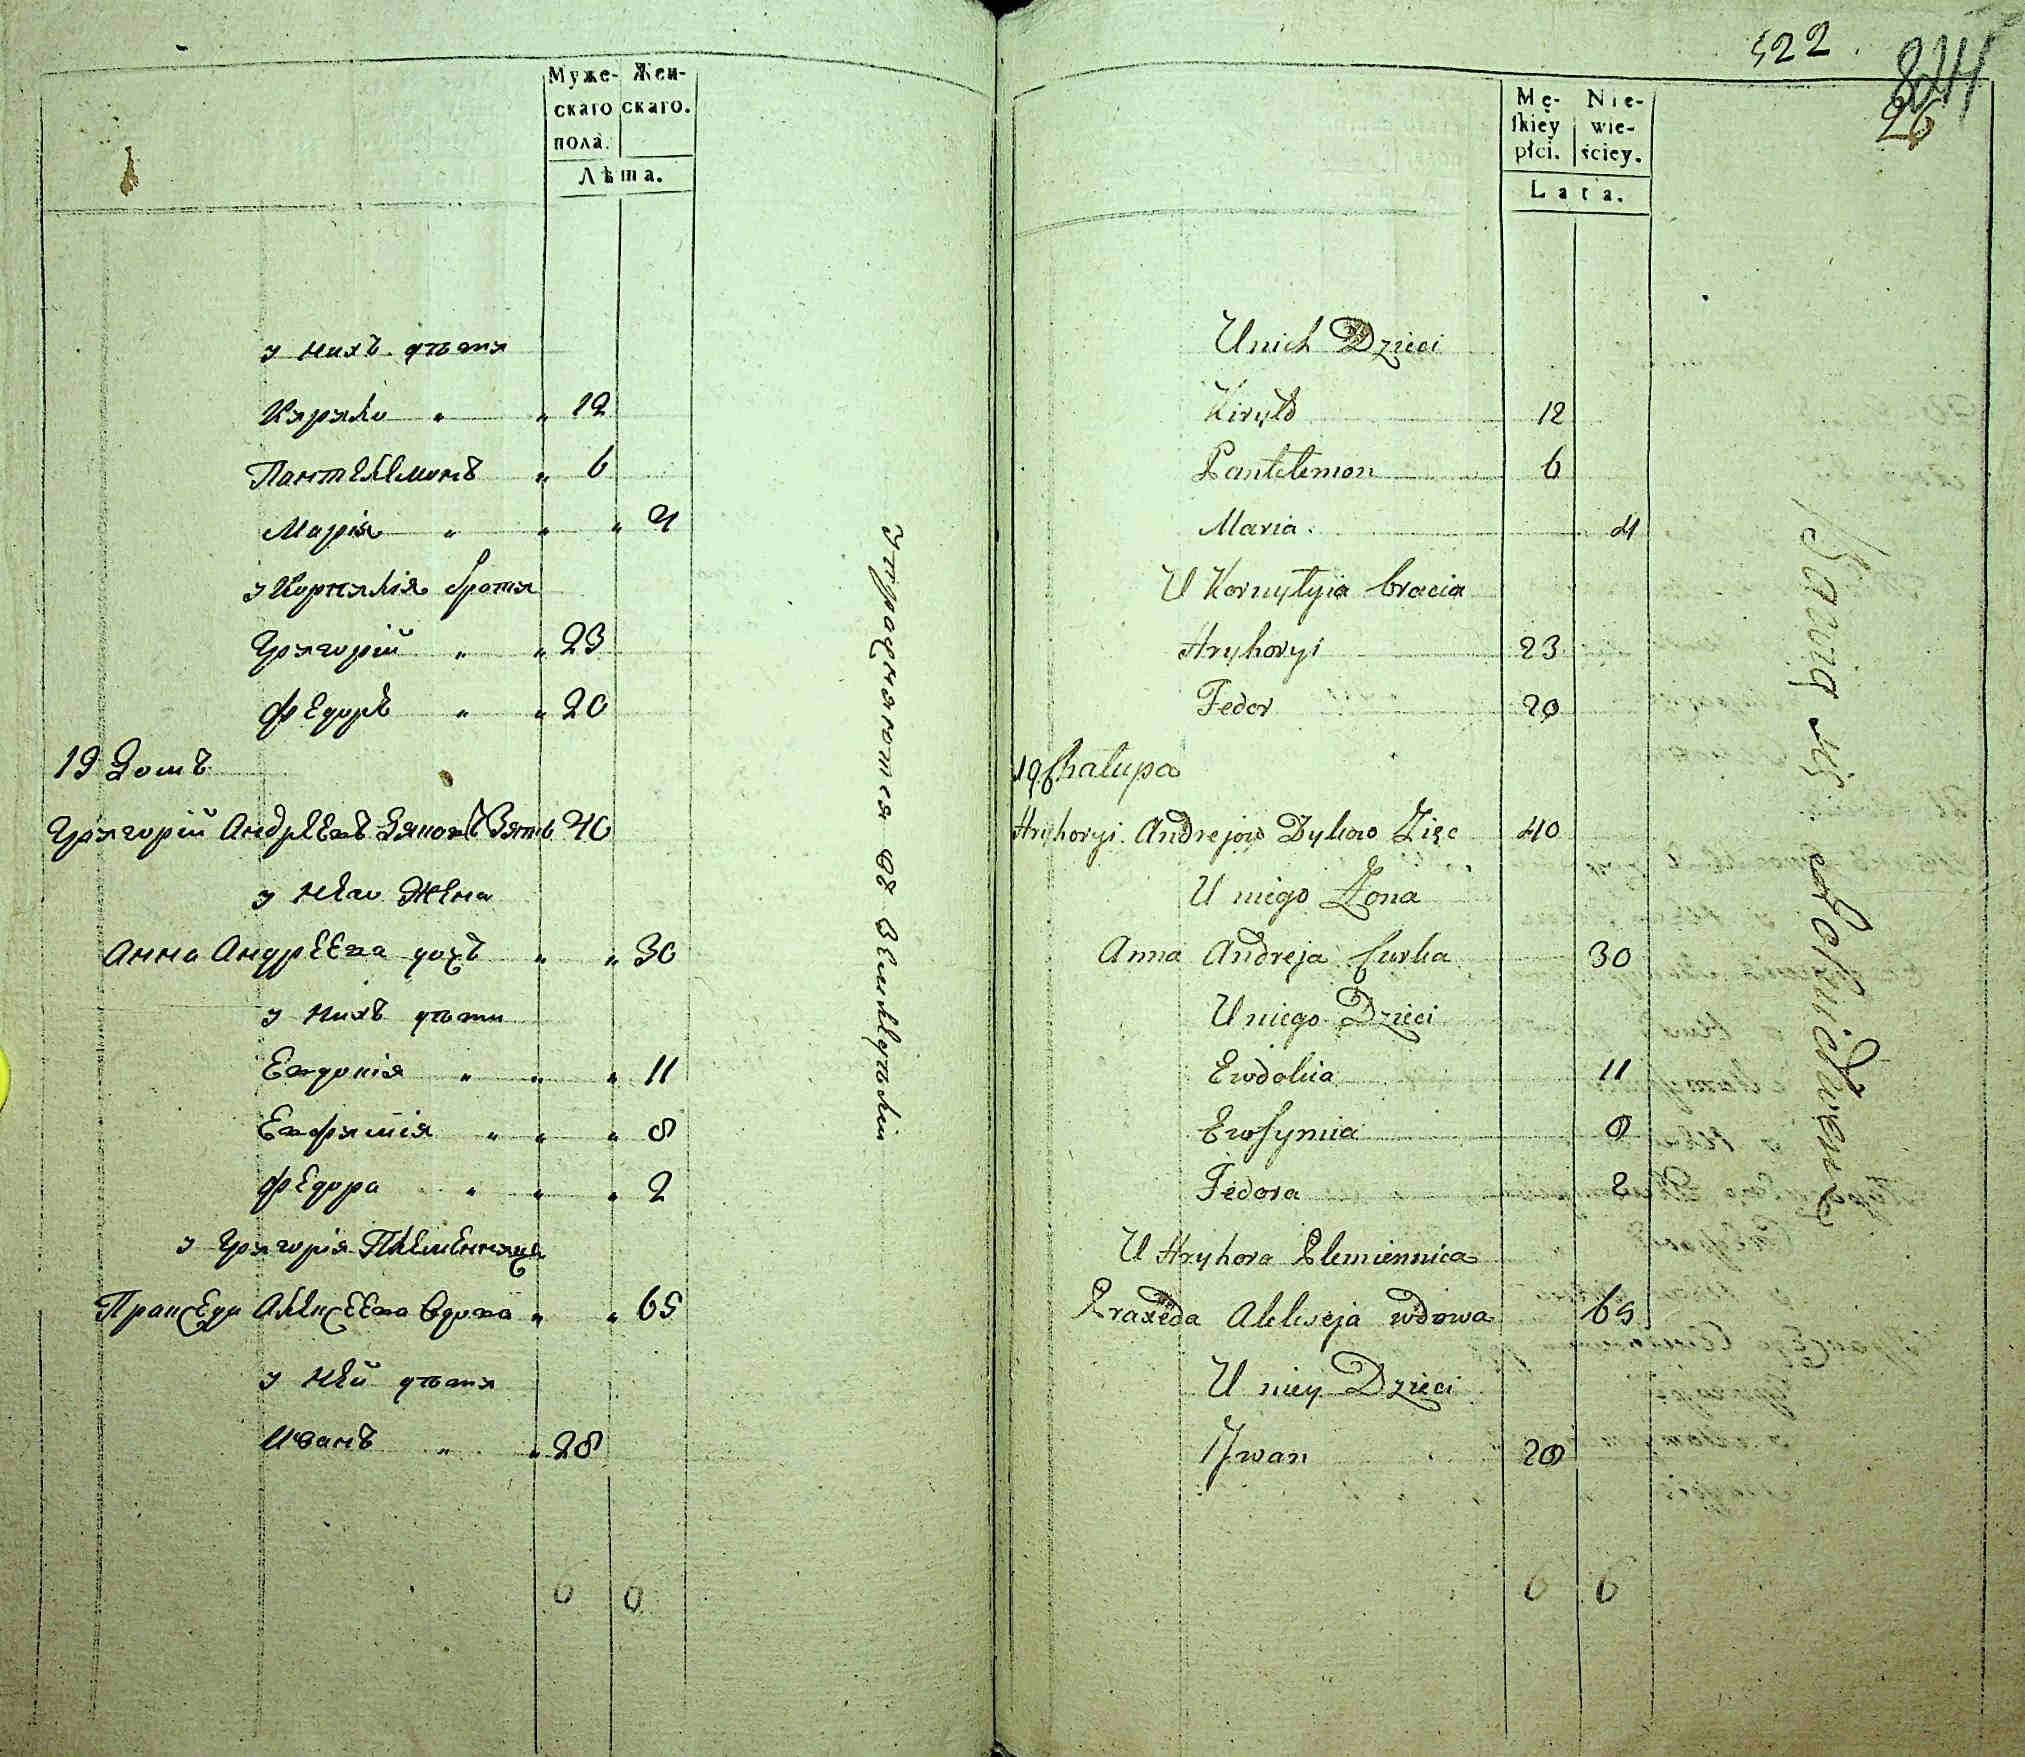 Муже- Жен-
скаго скаго.
пола.
Лѣта.
у нихъ дѣти
Кирило " " 12
Пантелемонъ " 6
Марія " " " 4
у Корнилія братя
Григорій " " 23
Федоръ " " 20
19 Домъ
Григорій Андреевъ Зять 40
у него Жена
Анна Андреева дочь " " 30
у нихъ дѣти
Евдокія " " " 11
Евфимія " " " 8
Федора " " " 2
у Григорія Племенница
Пракседа Алексеева вдова " " 65
у ней дѣти
Иванъ " " 28
6 6
Упражняются въ Земледѣліи
522
244
26
Mę- Nie-
skiey wie-
płci. ściey.
Lata.
U nich Dzieci
Kiryło 12
Pantelemon 6
Maria 4
U Kornyłyia bracia
Hryhoryi 23
Fedor 20
19 Chałupa
Hryhoryi Andrejow Dykow Zięc 40
U niego Żona
Anna Andreja Curka 30
U niego Dzieci
Ewdokia 11
Ewfymia 8
Fedora 2
U Hryhora Plemiennica
Praxeda Alekseja wdowa 65
U niey Dzieci
Iwan 28
6 6
Bawią się Rolnictwem